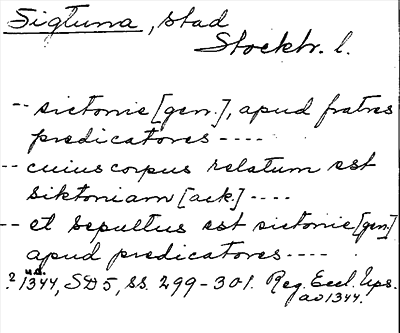 Sigtuna, stad
Stockh. l.
-- sictonie [gen.], apud fratres
predicatores ----
-- cuius corpus relatum est
siktoniam [ack.] ----
-- et sepultus est sictonie [gen.]
apud predicatores ----
? u.d.
1344, SD5, ss. 299-301. Reg. Eccl. Ups.
ao 1344.